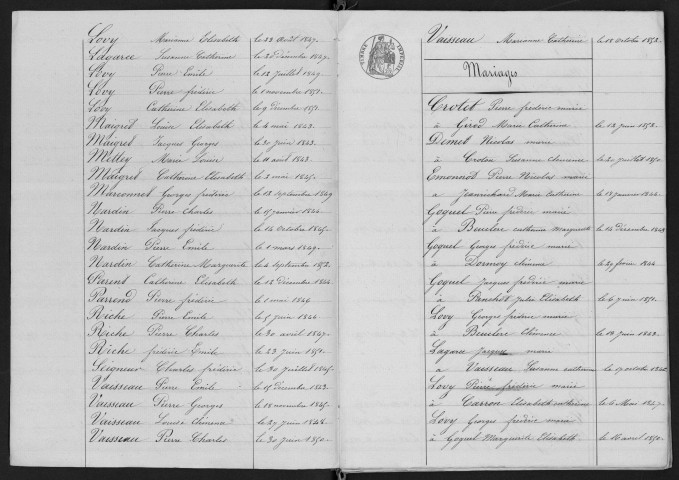 Lovy Marianne Elisabeth le 22 Août 1849.
Lagarce Susanne Catherine le 20 Décembre 1849.
Lovy Pierre Emile le 12 Juillet 1849
Lovy Pierre frédéric le 1 novembre 1851.
Lovy Catherine Elisabeth le 9 décembre 1851.
Maigret Louise Elisabeth le 4 mai 1843.
Maigret Jacques Georges le 20 juin 1843.
Mettey Marie Louise le 11 août 1843.
Maigret Catherine Elisabeth le 3 mai 1845.
Marconnet Georges frédéric le 13 Septembre 1849
Nardin Pierre Charles le janvier 1844.
Nardin Jacques frédéric le 14 Octobre 1845.
Nardin Pierre Emile le 1 mars 1849.
Nardin Catherine Marguerite le 4 septembre 1852.
Parent Catherine Elisabeth le 18 Décembre 1844
Parrend Pierre frédéric le 1 mai 1844
Riche Pierre Emile le 5 juin 1844
Riche Pierre Charles le 30 avril 1847.
Riche frédéric Emile le 23 juin 1850.
Seigneur Charles frédéric le 30 juillet 1845.
Vaisseau Pierre Emile le 15 décembre 1843.
Vaisseau Pierre Georges le 18 novembre 1845.
Vaisseau Louise le 27 juin 1848.
Vaisseau Pierre Charles le 30 Juin 1850.
TIMBRE IMPERIAL
Vaisseau Marianne Catherine le 18 Octobre 1852.
Mariages
Crotet Pierre frédéric marié
à Girod Marie Catherine le 12 juin 1852.
Demet Nicolas marié
à Susanne Clémence le 20 juillet 1850.
Emonnot Pierre Nicolas marié
à Jeanrichard Marie Catherine le 18 janvier 1844.
Goguel Pierre frédéric marié
à Beucler catherine Marguerite le 14 Décembre 1848
Goguel Georges frédéric marié
à le 29 février 1844
Goguel Jacques frédéric marié
à Julie Elisabeth le 6 juin 1850.
Lovy Georges frédéric marié
à Beucler Clémence le 18 juin 1842.
Lagarce Jacques marié
à Vaisseau Susanne catherine le 17 octobre
Lovy Pierre frédéric marié
à Carron Elisabeth catherine le 6 Mai 1847.
Lovy Georges frédéric marié
à Goguel Marguerite Elisabeth le 18 avril 1850.